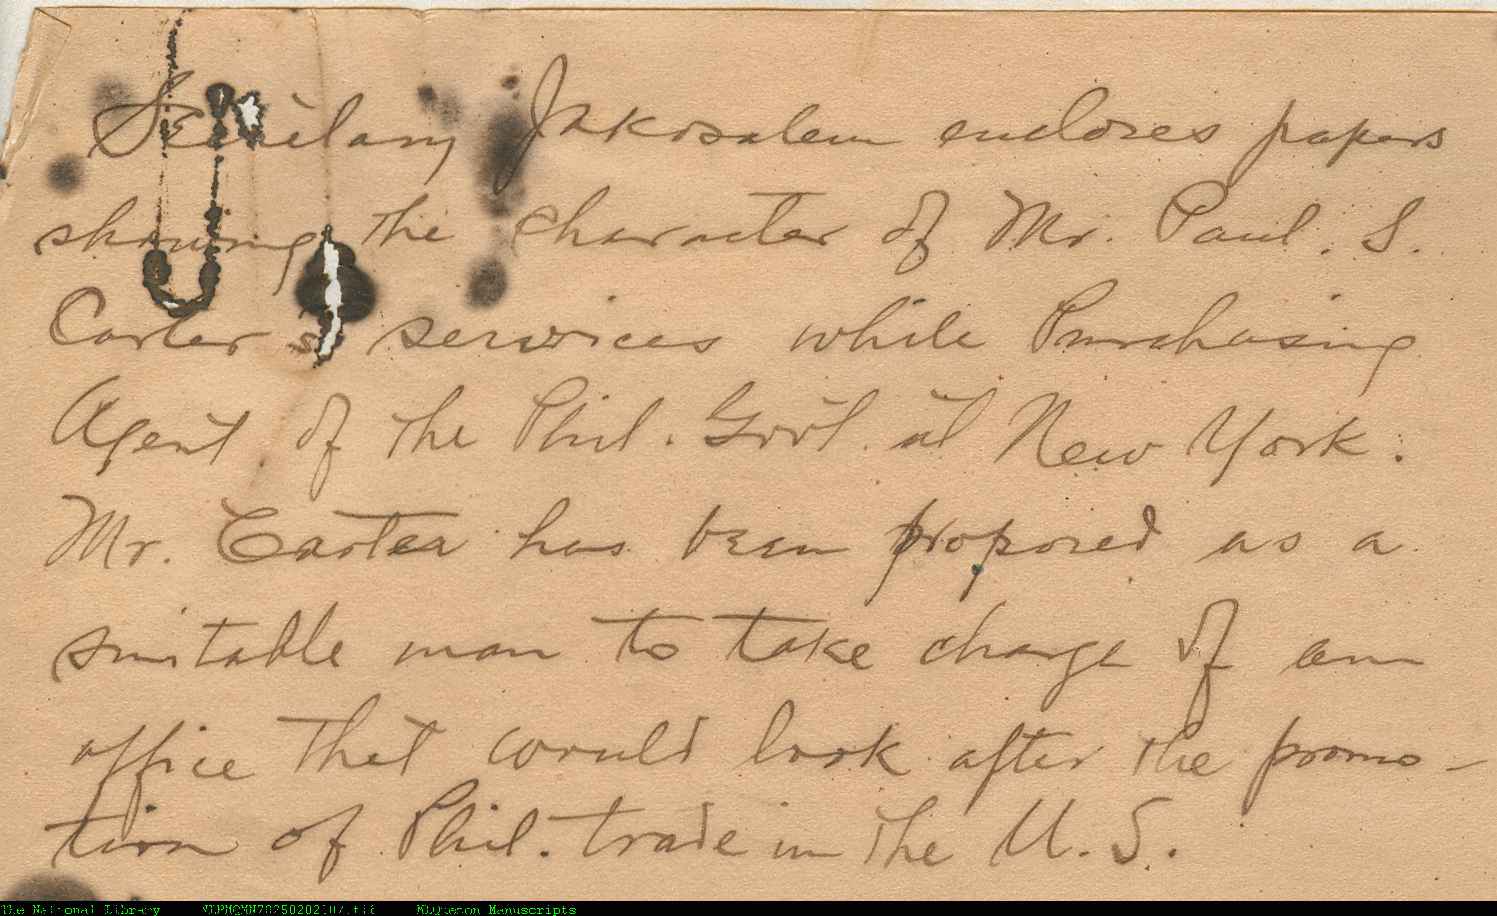 Secretary Jakosalem encloses papers
showing the character of Mr. Paul. S.
Carter's services while Purchasing
Agent of the Phil. Gov't. at New York.
Mr. Carter has been proposed as a
suitable man to take charge of an
office that would look after the promo-
tion of Phil. trade in the U.S.
The National Library MLQuezon Manuscripts